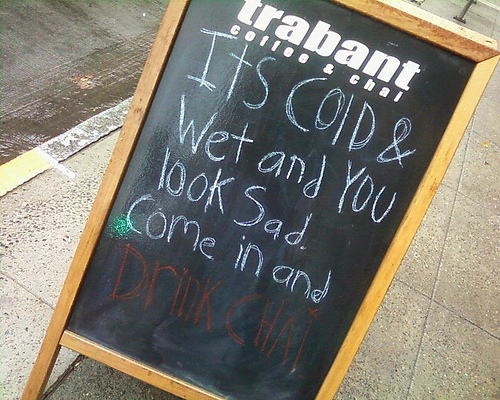 trabant
coffee & chai
ITS COlD &
Wet and YOU
look Sad.
Come in and
DrinK CHAI